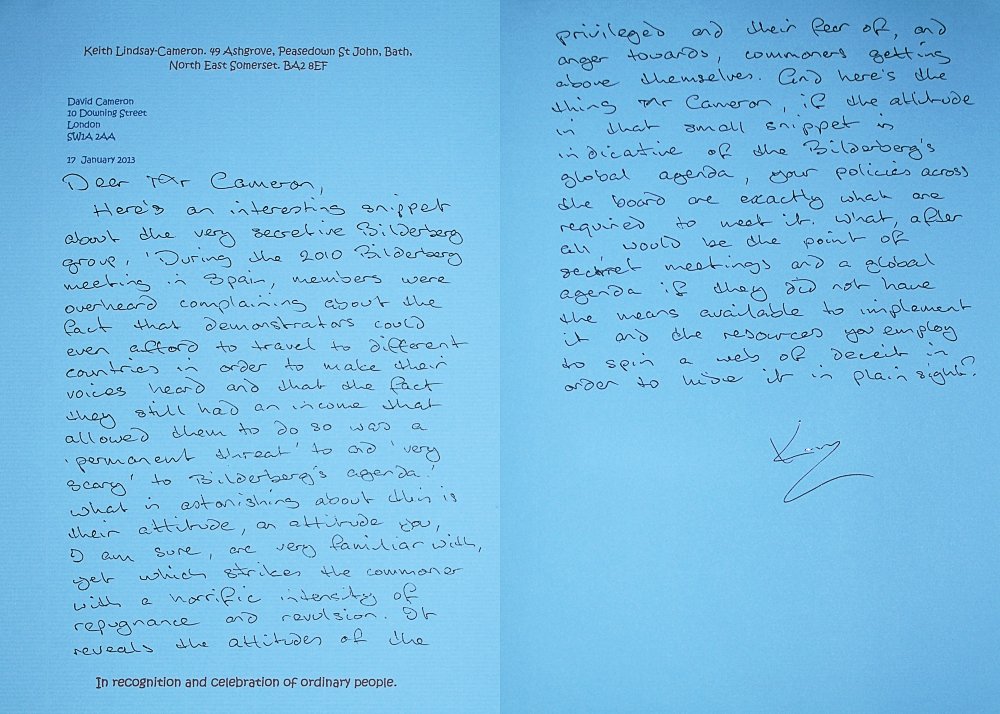 Keith Lindsay-Cameron. 49 Ashgrove, Peasedown St John, Bath,
North East Somerset. BA2 8EF
David Cameron
10 Downing Street
London
SW1A 2AA
17 January 2013
Dear Mr Cameron,
Here's an interesting snippet
about the very secretive Bilderberg
group, 'During the 2010 Bilderberg
meeting in Spain, members were
overheard complaining about the
fact that demonstrators could
even afford to travel to different
countries in order to make their
voices heard and that the fact
they still had an income that
allowed them to do so was a
'permanent threat' to and 'very
scary' to Bilderberg's agenda.'
What is astonishing about this is
their attitude, an attitude you,
I am sure, are very familiar with,
yet which strikes the commoner
with a horrific intensity of
repugnance and revulsion. It
reveals the attitudes of the
In recognition and celebration of ordinary people.
privileged and their fear of, and
anger towards, commoners getting
above themselves. And here's the
thing Mr Cameron, if the attitude
in that small snippet is
indicative of the Bilderberg's
global agenda, your policies across
the board are exactly what are
required to meet it. What, after
all would be the point of
secret meetings and a global
agenda if they did not have
the means available to implement
it and the resources you employ
to spin a web of deceit in
order to hide it in plain sight?